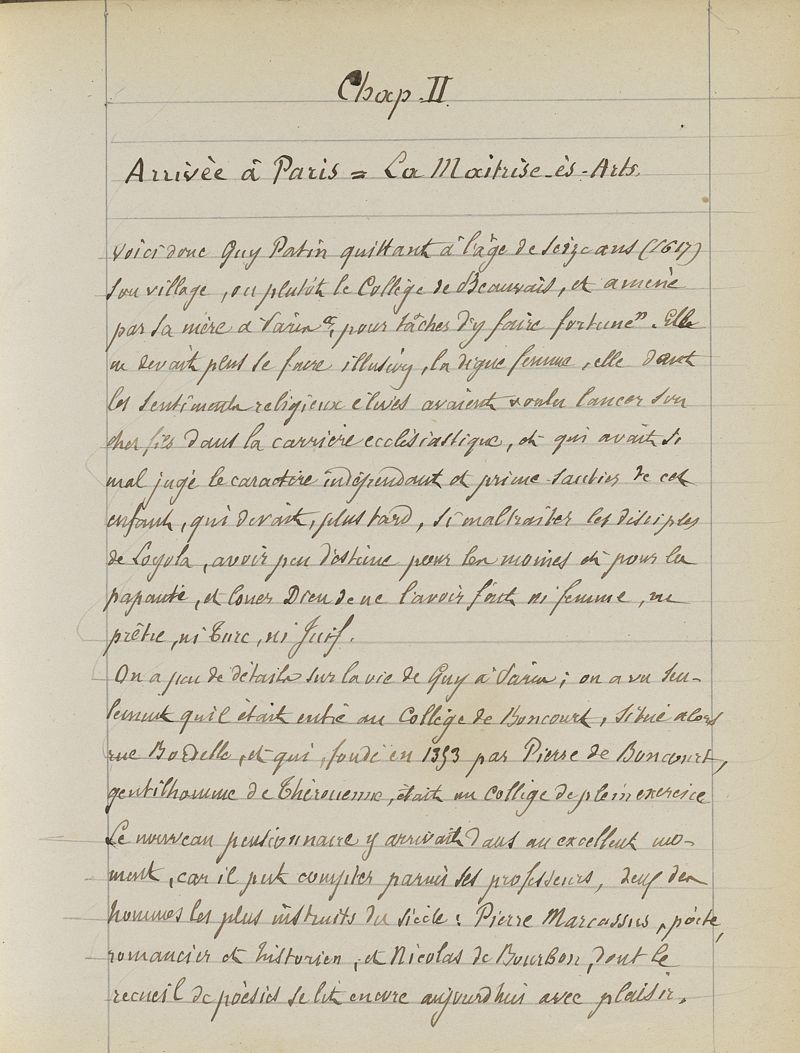 Chap. II
Arrivée à Paris = La Maitrise-ès-Arts.
Voici donc Guy Patin quittant à l'âge de seize ans (1617)
son village, ou plutôt le Collège de Beauvais, et amené
par sa mère à Paris "pour tâcher d'y faire fortune". Elle
ne devait plus se faire illusion, la digne femme, elle dont
les sentiments religieux élevés avaient voulu lancer son
cher fils dans la carrière ecclésiastique, et qui avait si
mal jugé le caractère indépendant et prime-sautier de cet
enfant, qui devait, plus tard, si maltraiter les disciples
de Loyola, avoir peu d'estime pour les moines et pour la
papauté, et louer Dieu de ne l'avoir fait ni femme, ni
prêtre, ni Turc, ni Juif.
On a peu de détails sur la vie de Guy à Paris; on a vu seu-
lement qu'il était entré au Collège de Boncourt, situé alors
rue Bordelle, et qui, fondé en 1353 par Pierre de Boncourt,
gentilhomme de Thérouenne, était un collège de plein exercice
Le nouveau pensionnaire y arrivait dans un excellent mo-
ment, car il put compter parmi ses professeurs, deux des
hommes les plus instruits du siècle: Pierre Marcassus, poète,
romancier et historien, et Nicolas de Bourbon, dont le
recueil de poèsies se lit encore aujourd'hui avec plaisir.